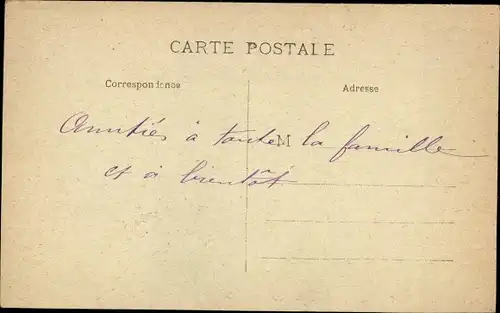 CARTE POSTALE
Correspondance
Adresse
M
Amitiés à toute la famille
et à bientôt